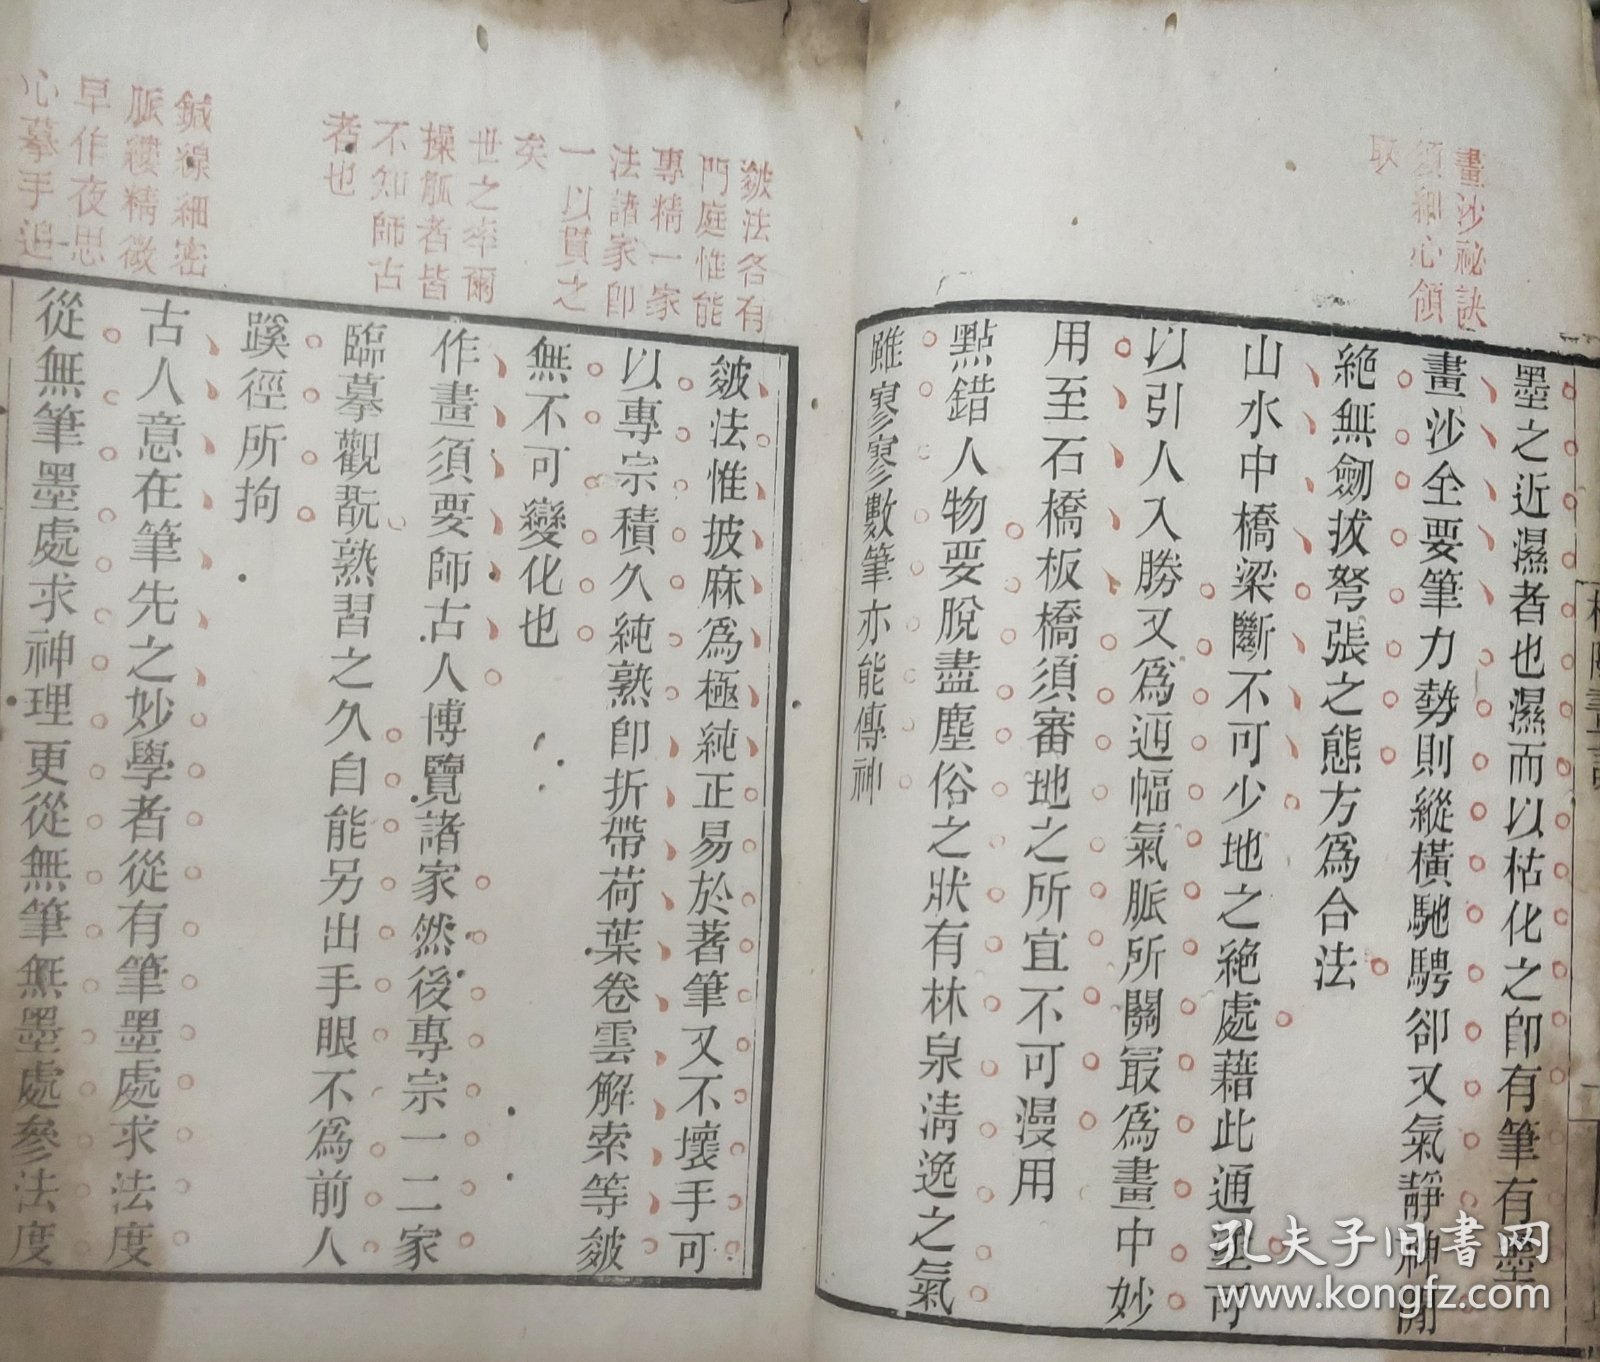 畫沙祕訣
須細心領
取
墨之近濕者也濕而以枯化之卽有筆有墨
畫沙全要筆力勢則縱橫馳騁卻又氣靜神閒
絕無劒拔弩張之態方爲合法
山水中橋梁斷不可少地之絕處藉此通塞可
以引人入勝又爲逈幅氣脈所關最爲畫中妙
用至石橋板橋須審地之所宜不可漫用
點錯人物要脫盡塵俗之狀有林泉清逸之氣
雖寥寥數筆亦能傳神
皴法各有
門庭惟能
專精一家
法諸家卽
一以貫之
矣
世之率爾
操觚者皆
不知師古
者也
鍼線細密
脈縷精微
早作夜思
心摹手追
皴法惟披麻爲極純正易於著筆又不壞手可
以專宗積久純熟卽折帶荷葉卷雲解索等皴
無不可變化也
作畫須要師古人博覽諸家然後專宗一二家
臨摹觀翫熟習之久自能另出手眼不爲前人
蹊徑所拘
古人意在筆先之妙學者從有筆墨處求法度
從無筆墨處求神理更從無筆無墨處參法度
孔夫子旧书网
www.kongfz.com